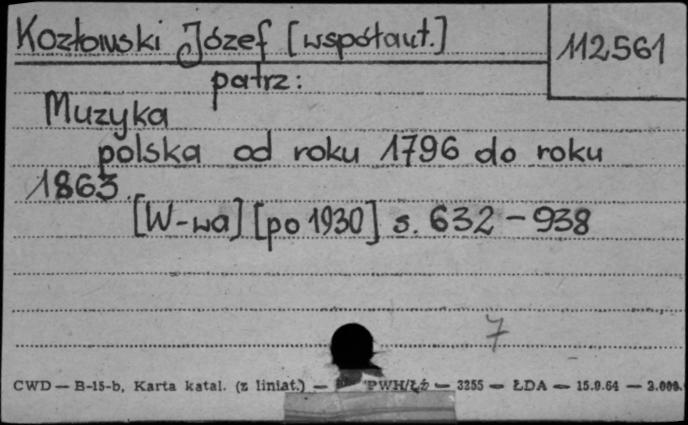 Kozłowski Józef [współaut.] 112561
patrz:
Muzyka
polska od roku 1796 do roku
1863.
[W-wa] [po 1930] s. 632-938
7
CWD — B-15-b, Karta katal. (z liniat.) — PWH/Łź — 3255 — ŁDA — 15.9.64 —